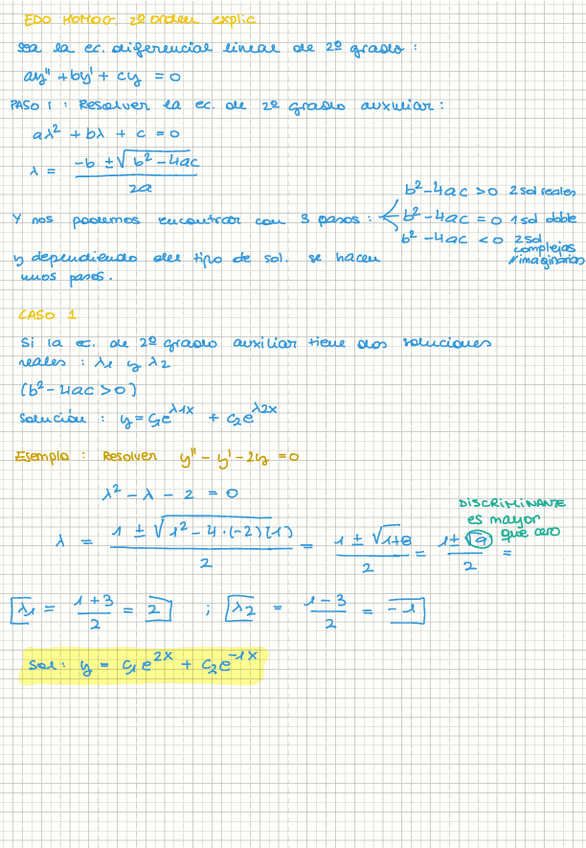 EDO HOMOG. 2º orden explic
Sea la ec. diferencial lineal de 2º grado :
ay'' + by' + cy = 0
PASO 1 : Resolver la ec. de 2º grado auxiliar :
aλ² + bλ + c = 0
λ = (-b ± √(b² - 4ac)) / 2a
Y nos podemos encontrar con 3 pasos :
b² - 4ac > 0 2 sol reales
b² - 4ac = 0 1 sol doble
b² - 4ac < 0 2 sol complejas // imaginarias
y dependiendo del tipo de sol. se hacen
unos pasos.
CASO 1
Si la ec. de 2º grado auxiliar tiene dos soluciones
reales : λ1 y λ2
(b² - 4ac > 0)
Solución : y = C1e^λ1x + C2e^λ2x
Ejemplo : Resolver y'' - y' - 2y = 0
λ² - λ - 2 = 0
DISCRIMINANTE
es mayor
que cero
λ = (1 ± √(1² - 4·(-2)(1))) / 2 = (1 ± √1+8) / 2 = (1 ± √9) / 2 =
λ1 = (1+3) / 2 = 2 ; λ2 = (1-3) / 2 = -1
Sol: y = C1e^2x + C2e^-1x